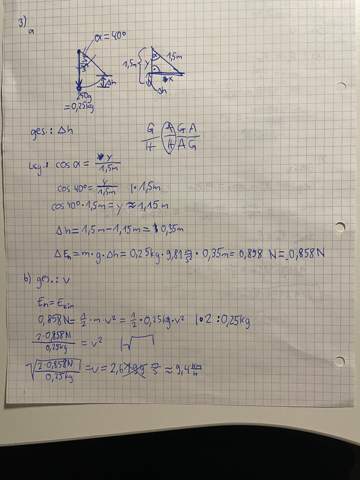 3)
a
α = 40°
1,5m
Δh
250g
= 0,25kg
1,5m
y
α
1,5m
x
Δh
ges.: Δh
G A G A
H H A G
Lsg.: cos α = y / 1,5m
cos 40° = y / 1,5m | · 1,5m
cos 40° · 1,5m = y ≈ 1,15m
Δh = 1,5m - 1,15m = 0,35m
ΔEₙ = m · g · Δh = 0,25kg · 9,81 m/s² · 0,35m = 0,858 N = 0,858N
b) ges.: v
Eₙ = Eₖᵢₙ
0,858N = 1/2 · m · v² = 1/2 · 0,25kg · v² | · 2 : 0,25kg
2 · 0,858N / 0,25kg = v² | √
√(2 · 0,858N / 0,25kg) = v = 2,6 m/s ≈ 9,4 km/h